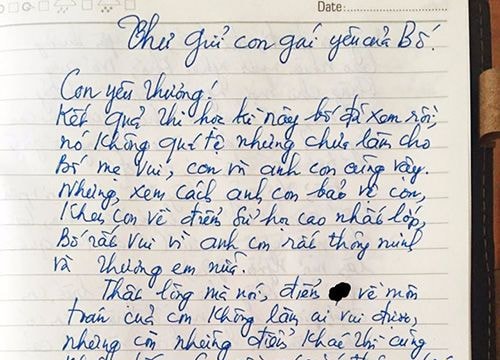 Date:
Thư gửi con gái yêu của Bố.
Con yêu thương!
Kết quả thi học kì này bố đã xem rồi,
nó không quá tệ nhưng chưa làm cho
Bố mẹ vui, con và anh con cũng vậy.
Nhưng, xem cách anh con bảo vệ con,
khen con về điểm sử học cao nhất lớp,
Bố rất vui vì anh con rất thông minh
và thương em nữa.
Thật lòng mà nói, điểm về môn
toán của con không làm ai vui được,
nhưng còn những điểm khác thì cũng